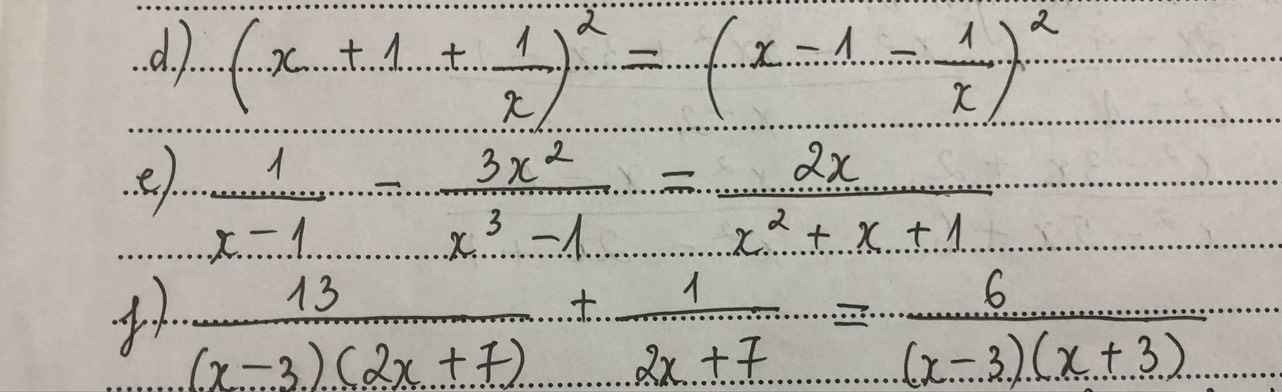 d) (x + 1 + 1/x)² = (x - 1 - 1/x)²
e) 1/(x - 1) - 3x²/(x³ - 1) = 2x/(x² + x + 1)
f) 13/((x - 3)(2x + 7)) + 1/(2x + 7) = 6/((x - 3)(x + 3))